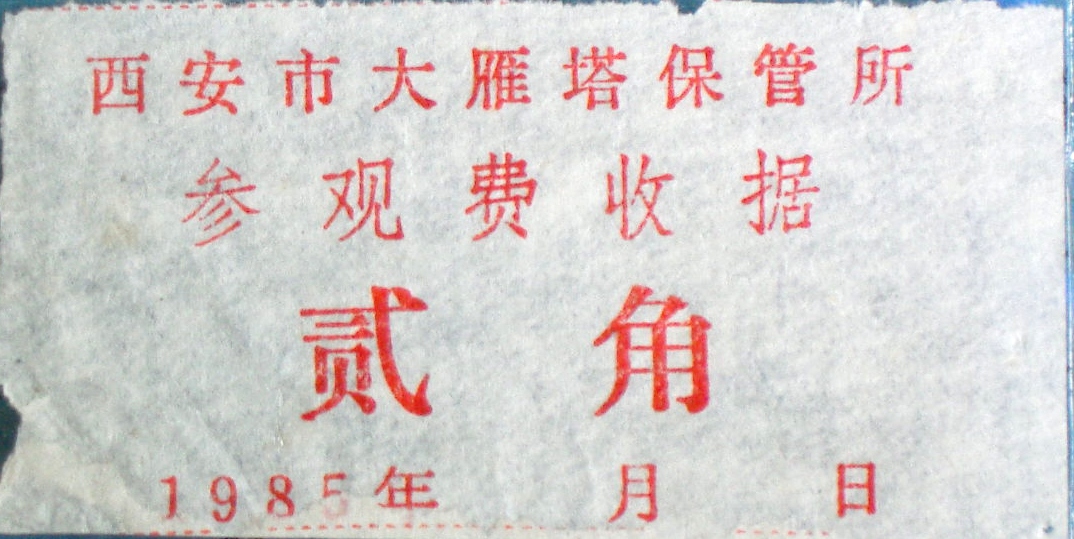 西安市大雁塔保管所
参观费收据
贰角
1985年 月 日